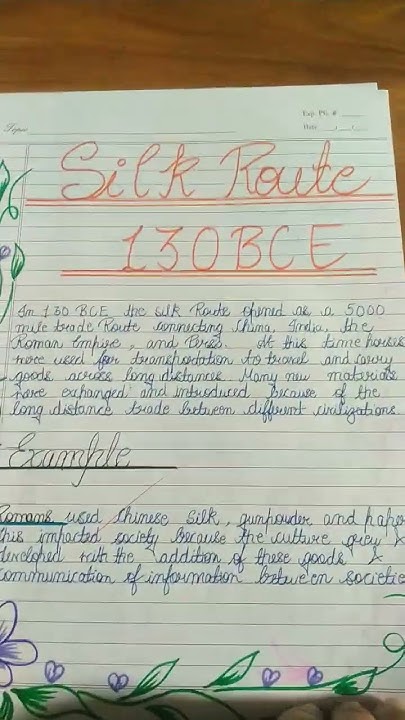 Exp. Pg. #
Topic
Date
Silk Route
130BCE
In 130 BCE the silk Route opened as a 5000
mile trade Route connecting China, India, the
Roman Empire, and Persia. At this time horses
were used for transportation to travel and carry
goods across long distances. Many new materials
were exhanged and introduced because of the
long distance trade between different civilizations.
Example
Romans used Chinese Silk, gunpowder and paper
this impacted society because the culture grew &
developed with the addition of these goods &
communication of information between societie